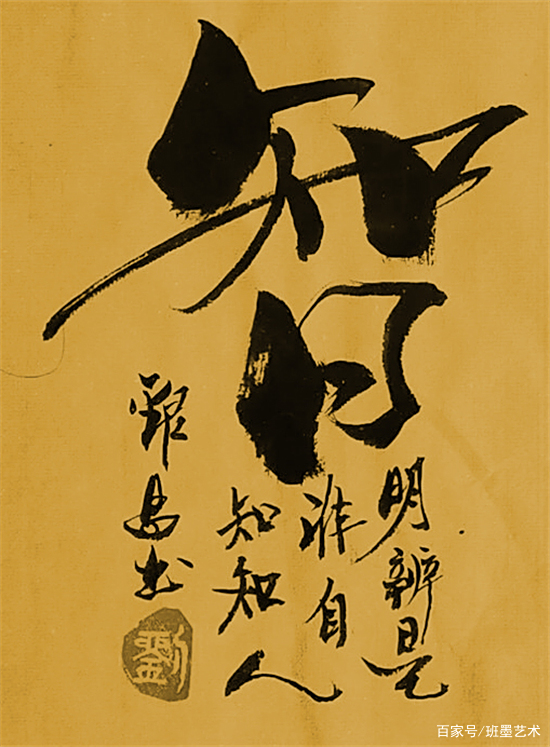 智
明辨是
非自
知知人
书
劉
百家号/班墨艺术